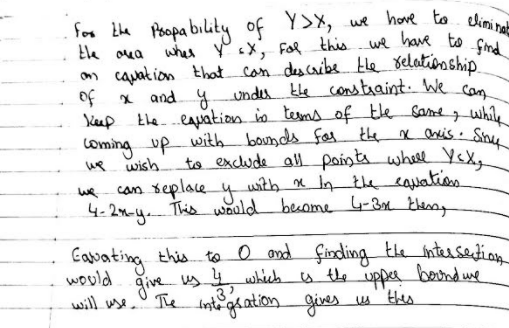 For the Propability of Y>X, we have to eliminat
the area wher Y<X, For this we have to find
an equation that can describe the relationship
of x and y under the constraint. We can
keep the equation in terms of the same, while
coming up with bounds for the x axis. Sinc
we wish to exclude all points where Y<X,
we can replace y with x In the equation
4-2x-y. This would become 4-3x then,
Equating this to 0 and finding the intersection
would give us 4/3, which is the upper bound we
will use. The integration gives us this